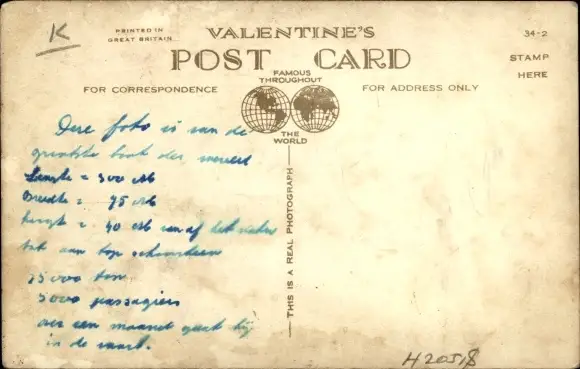 K
PRINTED IN
GREAT BRITAIN
VALENTINE'S
34-2
POST CARD
STAMP
HERE
FAMOUS
THROUGHOUT
FOR CORRESPONDENCE
FOR ADDRESS ONLY
THE
WORLD
THIS IS A REAL PHOTOGRAPH
Deze foto is van de
grootste boot der wereld
Lengte = 300 M
Breedte = 75 M
hoogte = 40 M vanaf het water
tot aan top schoorsteen
75000 ton
5000 passagiers
over een maand gaat hij
in de vaart.
H20518